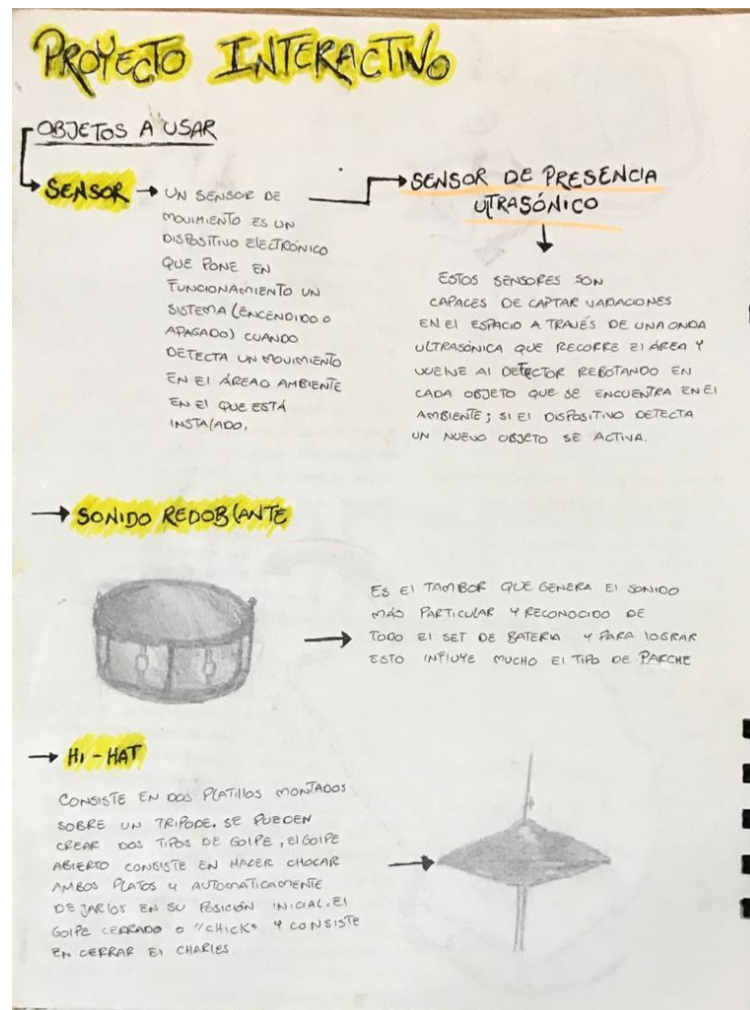 PROYECTO INTERACTIVO
OBJETOS A USAR
SENSOR
UN SENSOR DE
MOVIMIENTO ES UN
DISPOSITIVO ELECTRÓNICO
QUE PONE EN
FUNCIONAMIENTO UN
SISTEMA (ENCENDIDO O
APAGADO) CUANDO
DETECTA UN MOVIMIENTO
EN EL ÁREA O AMBIENTE
EN EL QUE ESTÁ
INSTALADO.
SENSOR DE PRESENCIA
ULTRASÓNICO
ESTOS SENSORES SON
CAPACES DE CAPTAR VARIACIONES
EN EL ESPACIO A TRAVÉS DE UNA ONDA
ULTRASÓNICA QUE RECORRE EL ÁREA Y
VUELVE AL DETECTOR REBOTANDO EN
CADA OBJETO QUE SE ENCUENTRA EN EL
AMBIENTE; SI EL DISPOSITIVO DETECTA
UN NUEVO OBJETO SE ACTIVA.
SONIDO REDOBLANTE
ES EL TAMBOR QUE GENERA EL SONIDO
MÁS PARTICULAR Y RECONOCIDO DE
TODO EL SET DE BATERIA Y PARA LOGRAR
ESTO INFLUYE MUCHO EL TIPO DE PARCHE
HI-HAT
CONSISTE EN DOS PLATILLOS MONTADOS
SOBRE UN TRIPODE. SE PUEDEN
CREAR DOS TIPOS DE GOLPE, EL GOLPE
ABIERTO CONSISTE EN HACER CHOCAR
AMBOS PLATOS Y AUTOMATICAMENTE
DEJARLOS EN SU POSICIÓN INICIAL. EL
GOLPE CERRADO O "CHICK" Y CONSISTE
EN CERRAR EL CHARLES